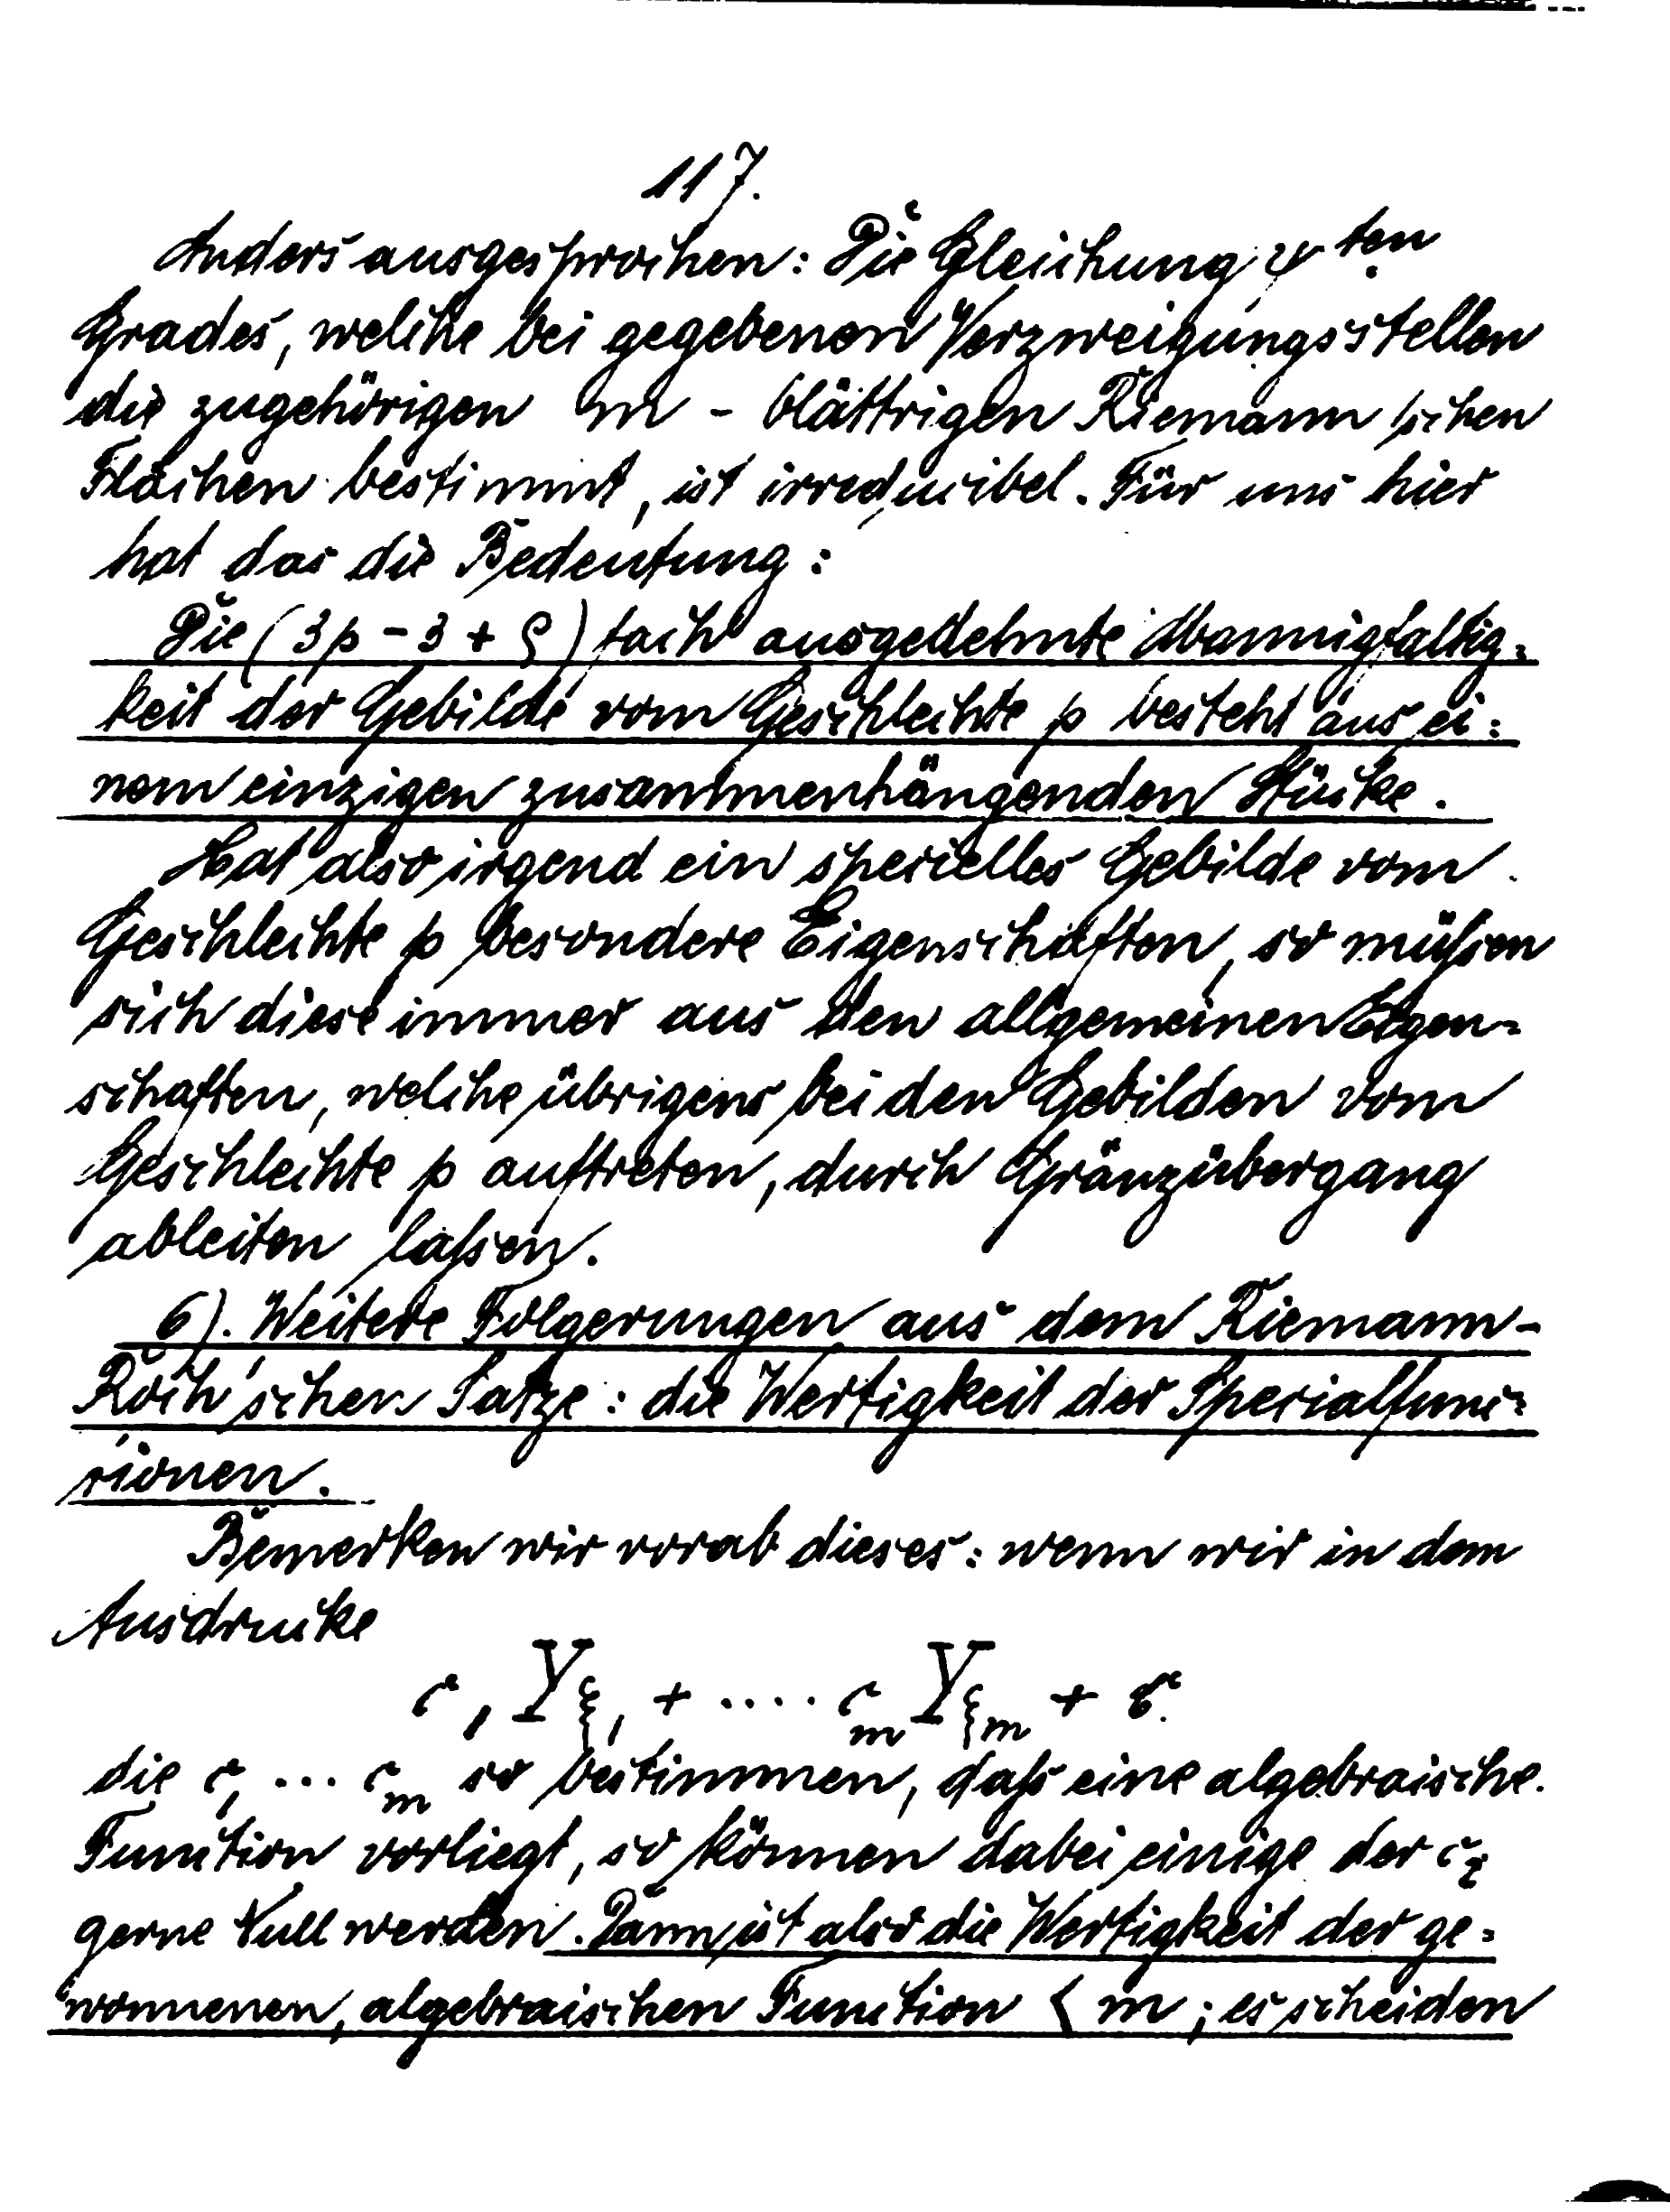 117.
Anders ausgesprochen: Die Gleichung ψ ten
Grades, welche bei gegebenen Verzweigungsstellen
die zugehörigen m - blättrigen Riemann'schen
Flächen bestimmt, ist irreducibel. Für uns hier
hat das die Bedeutung:
Die (3p - 3 + ρ) fach ausgedehnte Mannigfaltig=
keit der Gebilde vom Geschlechte p besteht aus ei=
nem einzigen zusammenhängenden Stücke.
Hat also irgend ein specielles Gebilde vom
Geschlechte p besondere Eigenschaften, so müßen
sich diese immer aus den allgemeinen Eigen=
schaften, welche übrigens bei den Gebilden vom
Geschlechte p auftreten, durch Gränzübergang
ableiten laßen.
6). Weitere Folgerungen aus dem Riemann-
Roch'schen Satze: die Wertigkeit der Specialfunc=
tionen.
Bemerken wir vorab dieses: wenn wir in dem
Ausdrucke
c₁ Y_ξ₁ + .... c_m Y_ξ_m + c
die c₁ ... c_m so bestimmen, daß eine algebraische
Function vorliegt, so können dabei einige der c_i
gerne Null werden. Dann ist also die Wertigkeit der ge=
wonnenen, algebraischen Function < m ; es scheiden